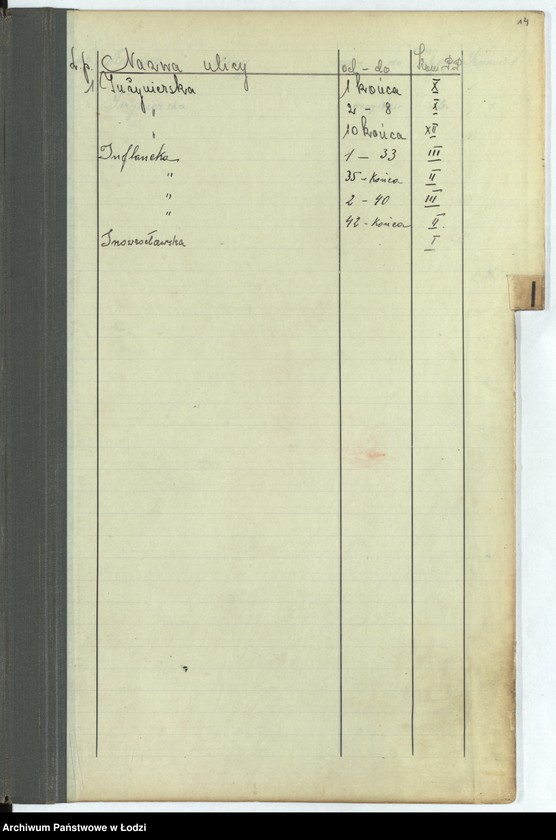 14
L.p. Nazwa ulicy od-do Kom. P.P.
1 Inżynierska 1 końca X
" 2 - 8 X
" 10 końca XII
Inflancka 1 - 33 III
" 35 - końca II
" 2 - 40 III
" 42 - końca II
Inowrocławska I
I
Archiwum Państwowe w Łodzi